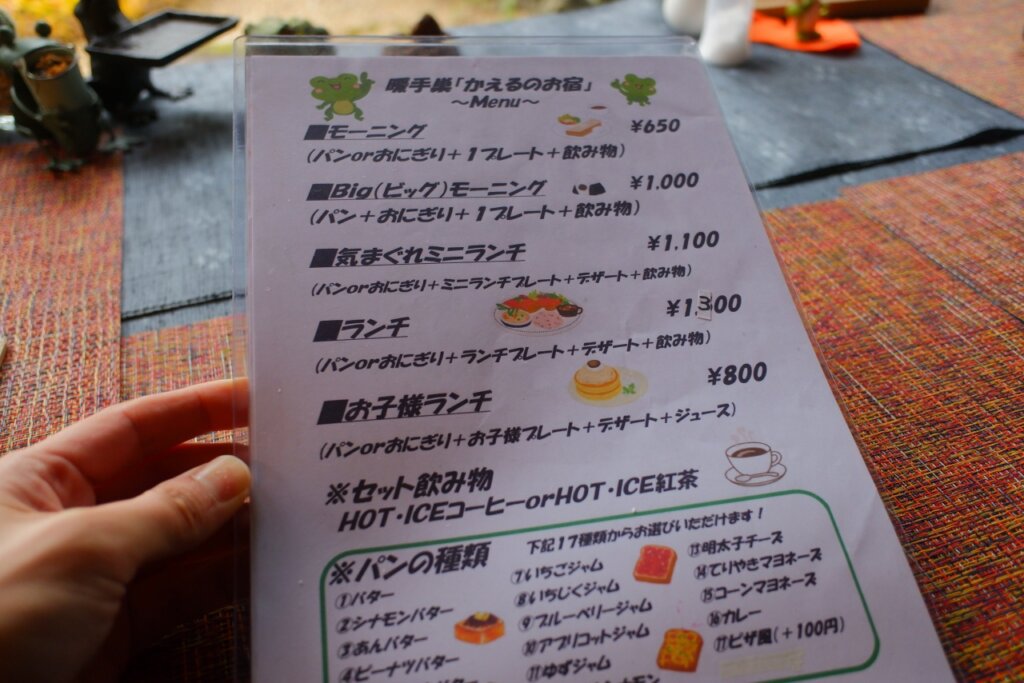 暖手巣「かえるのお宿」
～Menu～
■モーニング ¥650
(パンorおにぎり＋１プレート＋飲み物)
■Big(ビッグ)モーニング ¥1.000
(パン＋おにぎり＋１プレート＋飲み物)
■気まぐれミニランチ ¥1,100
(パンorおにぎり＋ミニランチプレート＋デザート＋飲み物)
■ランチ ¥1,300
(パンorおにぎり＋ランチプレート＋デザート＋飲み物)
■お子様ランチ ¥800
(パンorおにぎり＋お子様プレート＋デザート＋ジュース)
※セット飲み物
HOT・ICEコーヒーorHOT・ICE紅茶
※パンの種類
下記１７種類からお選びいただけます！
①バター
②シナモンバター
③あんバター
④ピーナツバター
⑦いちごジャム
⑧いちじくジャム
⑨ブルーベリージャム
⑩アプリコットジャム
⑪ゆずジャム
⑬明太子チーズ
⑭てりやきマヨネーズ
⑮コーンマヨネーズ
⑯カレー
⑰ピザ風(＋100円)